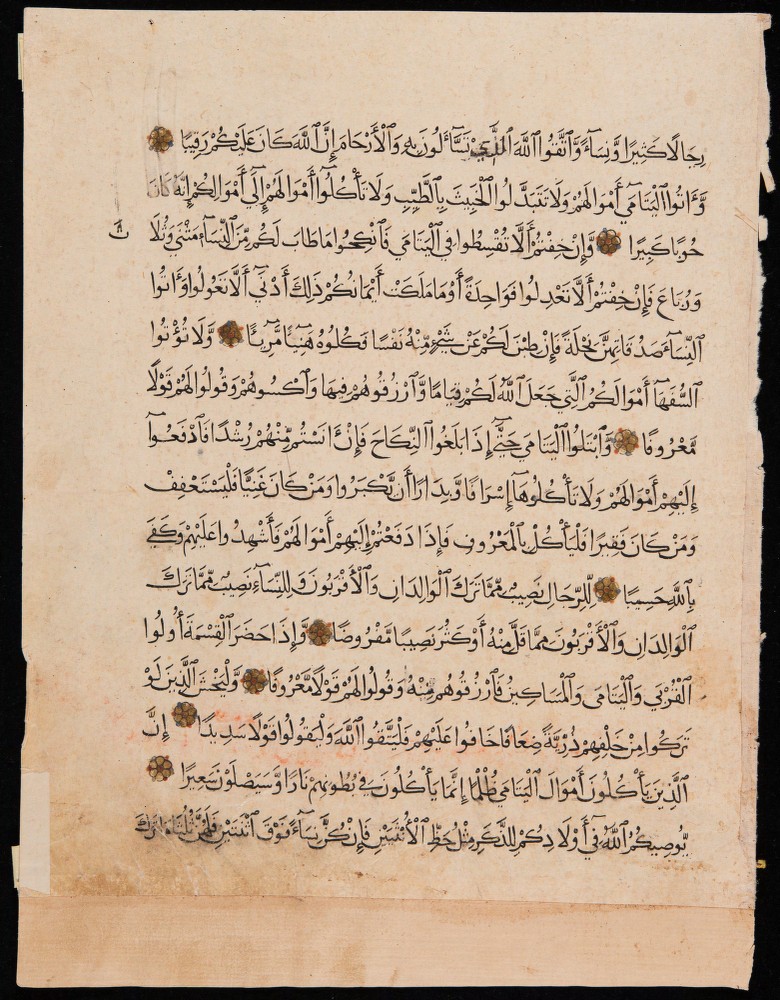 رِجَالًا كَثِيرًا وَّنِسَآءً وَّٱتَّقُوا ٱللَّهَ ٱلَّذِي تَسَّآءَلُونَ بِهِ وَٱلْأَرْحَامَ إِنَّ ٱللَّهَ كَانَ عَلَيْكُمْ رَقِيبًا
وَءَاتُوا ٱلْيَتَامَىٓ أَمْوَالَهُمْ وَلَا تَتَبَدَّلُوا ٱلْخَبِيثَ بِٱلطَّيِّبِ وَلَا تَأْكُلُوٓا أَمْوَالَهُمْ إِلَىٓ أَمْوَالِكُمْ إِنَّهُ كَانَ
حُوبًا كَبِيرًا وَّإِنْ خِفْتُمْ أَلَّا تُقْسِطُوا فِي ٱلْيَتَامَى فَٱنْكِحُوا مَا طَابَ لَكُمْ مِّنَ ٱلنِّسَآءِ مَثْنَى وَثُلَا
وَرُبَاعَ فَإِنْ خِفْتُمْ أَلَّا تَعْدِلُوا فَوَاحِدَةً أَوْ مَا مَلَكَتْ أَيْمَانُكُمْ ذَلِكَ أَدْنَىٓ أَلَّا تَعُولُوا وَءَاتُوا
ٱلنِّسَآءَ صَدُقَاتِهِنَّ نِحْلَةً فَإِنْ طِبْنَ لَكُمْ عَنْ شَيْءٍ مِّنْهُ نَفْسًا فَكُلُوهُ هَنِيٓئًا مَّرِيٓئًا وَّلَا تُؤْتُوا
ٱلسُّفَهَآءَ أَمْوَالَكُمُ ٱلَّتِي جَعَلَ ٱللَّهُ لَكُمْ قِيَامًا وَّٱرْزُقُوهُمْ فِيهَا وَٱكْسُوهُمْ وَقُولُوا لَهُمْ قَوْلًا
مَّعْرُوفًا وَّٱبْتَلُوا ٱلْيَتَامَى حَتَّىٓ إِذَا بَلَغُوا ٱلنِّكَاحَ فَإِنْ ءَانَسْتُمْ مِّنْهُمْ رُشْدًا فَٱدْفَعُوٓا
إِلَيْهِمْ أَمْوَالَهُمْ وَلَا تَأْكُلُوهَآ إِسْرَافًا وَّبِدَارًا أَنْ يَّكْبَرُوا وَمَنْ كَانَ غَنِيًّا فَلْيَسْتَعْفِفْ
وَمَنْ كَانَ فَقِيرًا فَلْيَأْكُلْ بِٱلْمَعْرُوفِ فَإِذَا دَفَعْتُمْ إِلَيْهِمْ أَمْوَالَهُمْ فَأَشْهِدُوا عَلَيْهِمْ وَكَفَى
بِٱللَّهِ حَسِيبًا لِّلرِّجَالِ نَصِيبٌ مِّمَّا تَرَكَ ٱلْوَالِدَانِ وَٱلْأَقْرَبُونَ وَلِلنِّسَآءِ نَصِيبٌ مِّمَّا تَرَكَ
ٱلْوَالِدَانِ وَٱلْأَقْرَبُونَ مِمَّا قَلَّ مِنْهُ أَوْ كَثُرَ نَصِيبًا مَّفْرُوضًا وَّإِذَا حَضَرَ ٱلْقِسْمَةَ أُولُوا
ٱلْقُرْبَى وَٱلْيَتَامَى وَٱلْمَسَاكِينُ فَٱرْزُقُوهُمْ مِّنْهُ وَقُولُوا لَهُمْ قَوْلًا مَّعْرُوفًا وَّلْيَخْشَ ٱلَّذِينَ لَوْ
تَرَكُوا مِنْ خَلْفِهِمْ ذُرِّيَّةً ضِعَافًا خَافُوا عَلَيْهِمْ فَلْيَتَّقُوا ٱللَّهَ وَلْيَقُولُوا قَوْلًا سَدِيدًا إِنَّ
ٱلَّذِينَ يَأْكُلُونَ أَمْوَالَ ٱلْيَتَامَى ظُلْمًا إِنَّمَا يَأْكُلُونَ فِي بُطُونِهِمْ نَارًا وَّسَيَصْلَوْنَ سَعِيرًا
يُّوصِيكُمُ ٱللَّهُ فِيٓ أَوْلَادِكُمْ لِلذَّكَرِ مِثْلُ حَظِّ ٱلْأُنْثَيَيْنِ فَإِنْ كُنَّ نِسَآءً فَوْقَ ٱثْنَتَيْنِ فَلَهُنَّ ثُلُثَا مَا تَرَكَ